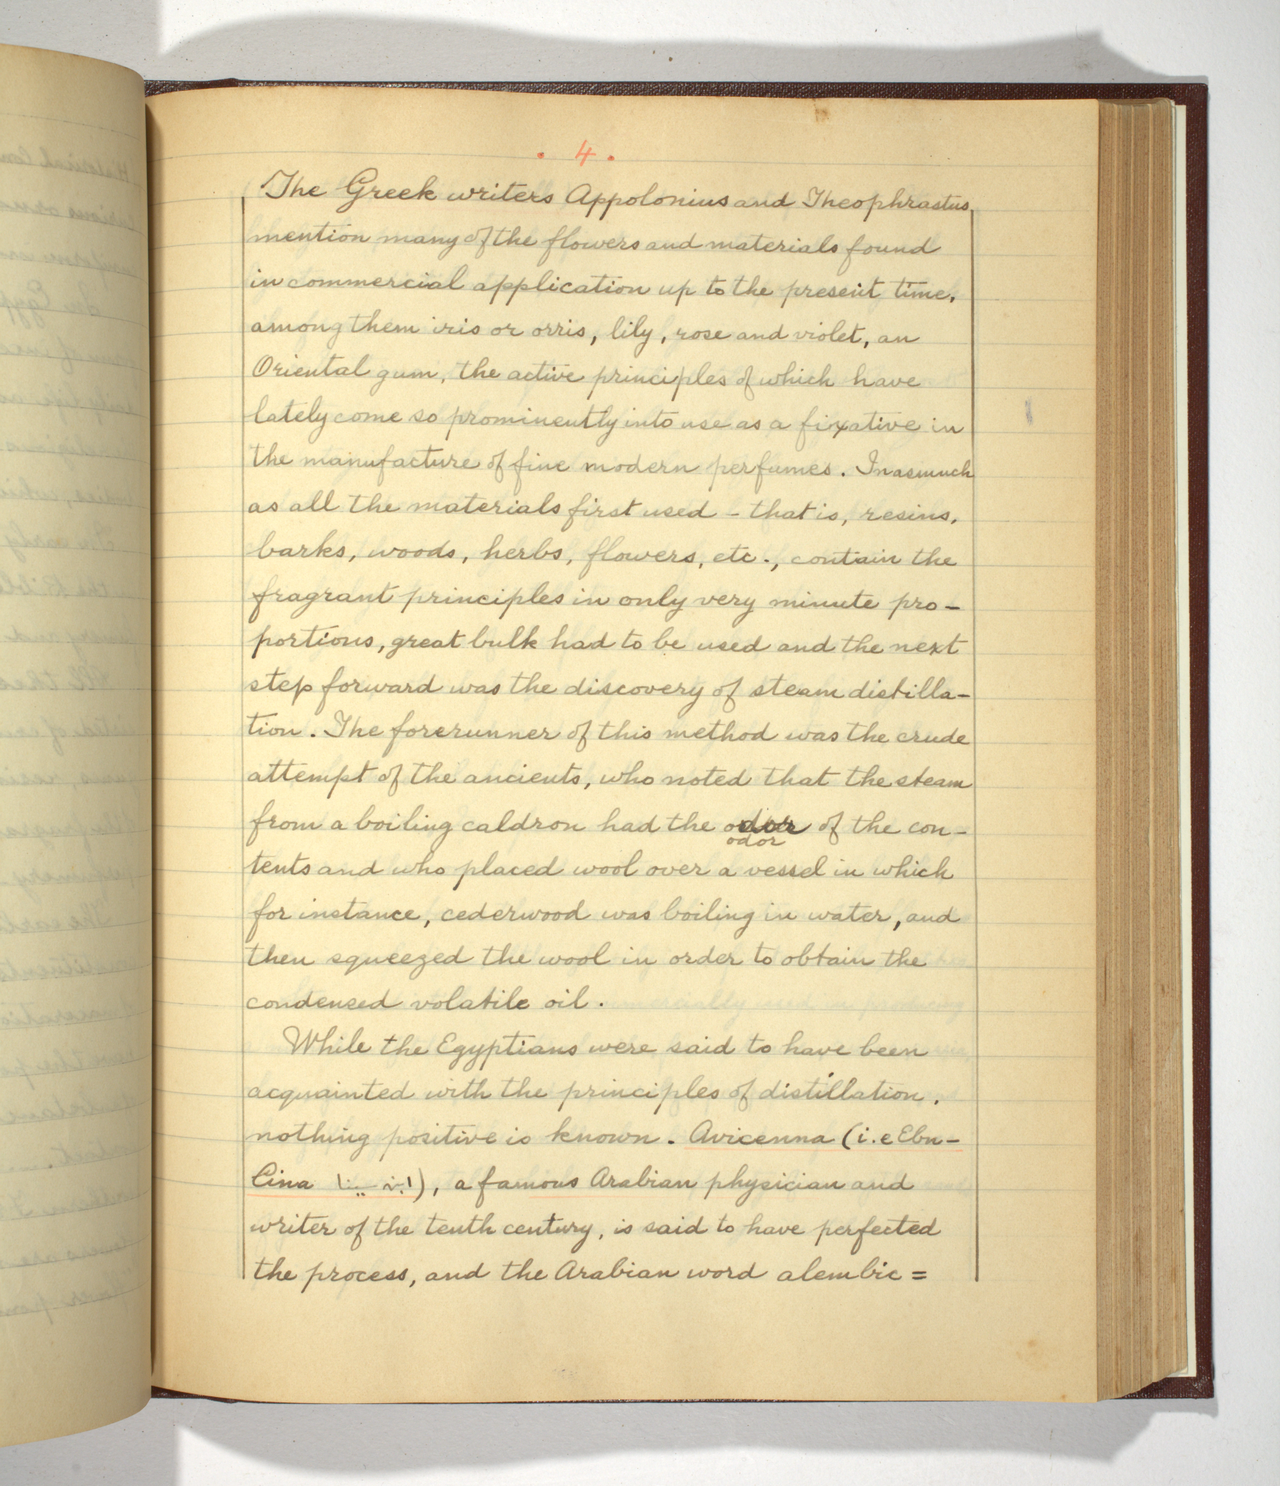 . 4 .
The Greek writers Appolonius and Theophrastus,
mention many of the flowers and materials found
in commercial application up to the present time,
among them iris or orris, lily, rose and violet, an
Oriental gum, the active principles of which have
lately come so prominently into use as a fixative in
the manufacture of fine modern perfumes. Inasmuch
as all the materials first used - that is, resins,
barks, woods, herbs, flowers, etc., contain the
fragrant principles in only very minute pro-
portions, great bulk had to be used and the next
step forward was the discovery of steam distilla-
tion. The forerunner of this method was the crude
attempt of the ancients, who noted that the steam
from a boiling caldron had the odor of the con-
odor
tents and who placed wool over a vessel in which
for instance, cederwood was boiling in water, and
then squeezed the wool in order to obtain the
condensed volatile oil.
While the Egyptians were said to have been
acquainted with the principles of distillation,
nothing positive is known. Avicenna (i.e Ebn-
Cina ابن سينا), a famous Arabian physician and
writer of the tenth century, is said to have perfected
the process, and the Arabian word alembic =